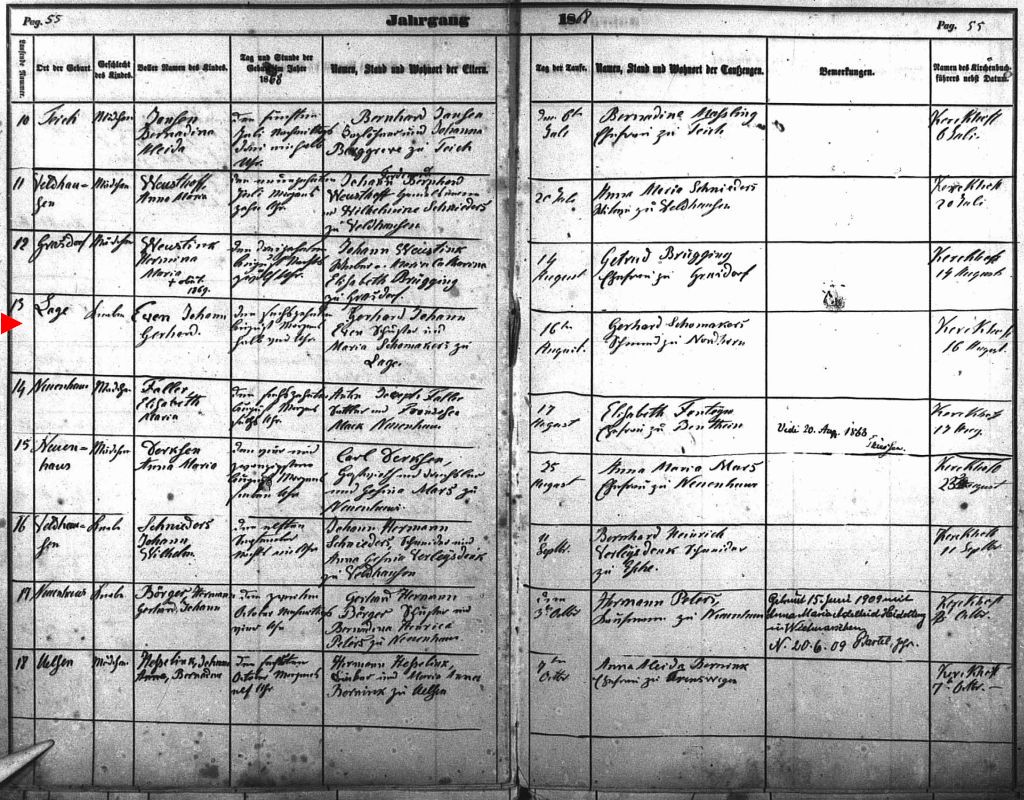 Pag. 55
Jahrgang 1868
Pag. 55
Laufende Nummer.
Ort der Geburt.
Geschlecht des Kindes.
Voller Namen des Kindes.
Tag und Stunde der Geburt im Jahre 1868
Namen, Stand und Wohnort der Eltern.
Tag der Taufe.
Namen, Stand und Wohnort der Taufzeugen.
Bemerkungen.
Namen des Kirchenbuchführers nebst Datum.
10
Teich
Mädchen
Jansen
Bernadina
Aleida
den fünften
Juli Nachmittags
Uhr.
Bernhard Jansen
und Johanna
Berggreve zu Teich
den 6t
Juli
Bernadine
Ehefrau zu Teich
Kerckhoff
6 Juli
11
Veldhau-
sen
Mädchen
Weusthoff
Anna Maria
den neunzehnten
Juli Morgens
zehn Uhr
Johann Bernhard
Weusthoff
u Wilhelmine Schnieders
zu Veldhausen
20 Juli
Anna Maria Schnieders
zu Veldhausen
Kerckhoff
20 Juli
12
Grasdorf
Mädchen
Weustink
Hermina
Maria
+ obiit
1869.
den dreizehnten
August Nachts
zwölf Uhr.
Johann Weustink
Maria Catharina
Elisabeth Brügging
zu Grasdorf.
14
August
Getrud Brügging
Ehefrau zu Grasdorf
Kerckhoff
14 August
13
Lage
Knabe
Even Johann
Gerhard.
den sechszehnten
August Morgens
halb vier Uhr
Gerhard Johann
Even Schuster und
Maria Schomakers zu
Lage.
16ten
August.
Gerhard Schomakers
zu Nordhorn
Kerckhoff
16 August.
14
Neuenhaus
Mädchen
Faller,
Elisabeth
Maria
den sechszehnten
August Morgens
Uhr.
Anton Joseph Faller
Sattler und Franzisca
Mack Neuenhaus
17
August
Elisabeth
Ehefrau zu Bentheim
Vidi 20. Aug. 1868
Kerckhoff
17 Aug.
15
Neuen-
haus
Mädchen
Derksen
Anna Maria
den vier und
zwanzigsten
August Morgens
sieben Uhr
Carl Derksen,
Gastwirth und Drechsler
und Gesina Mars zu
Neuenhaus
25
August
Anna Maria Mars
Ehefrau zu Neuenhaus
Kerckhoff
25 August
16
Veldhau-
sen
Knabe
Schnieders
Johann
Wilhelm
den elften
September
Nachts ein Uhr
Johann Hermann
Schnieders, Schneider und
Anna Gesina Verleysdenk
zu Veldhausen
11
Septbr.
Bernhard Heinrich
Verleysdenk Schneider
zu Esche.
Kerckhoff
11 Septbr
17
Neuenhaus
Knabe
Börger Hermann
Gerhard Johann
den zweiten
October Nachmittags
vier Uhr
Gerhard Hermann
Börger Schuster und
Bernadina Henrica
Peters zu Neuenhaus
den
3t Octbr
Hermann Peters
Kaufmann zu Neuenhaus
Getraut 15. Juni 1909 mit
Anna Maria Adelheid
in Wietmarschen
N. 20-6.09
Kerckhoff
3 Octbr.
18
Uelsen
Mädchen
Hesselink, Johanna
Anna, Bernadina
den sechsten
October Morgens
elf Uhr
Hermann Hesselink,
und Maria Anna
Bernink zu Uelsen
7ten
Octbr
Anna Aleida Bernink
Ehefrau zu Frenswegen
Kerckhoff
7 Octbr. –